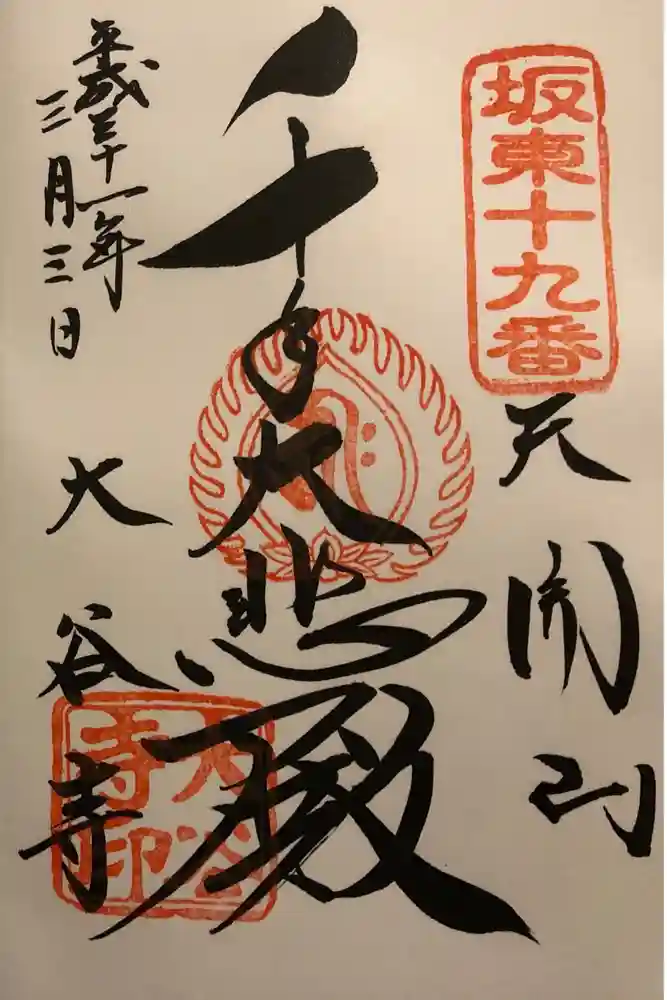 坂東十九番
天開山
千手大悲殿
平成三十一年
三月三日
大谷寺
大谷寺印